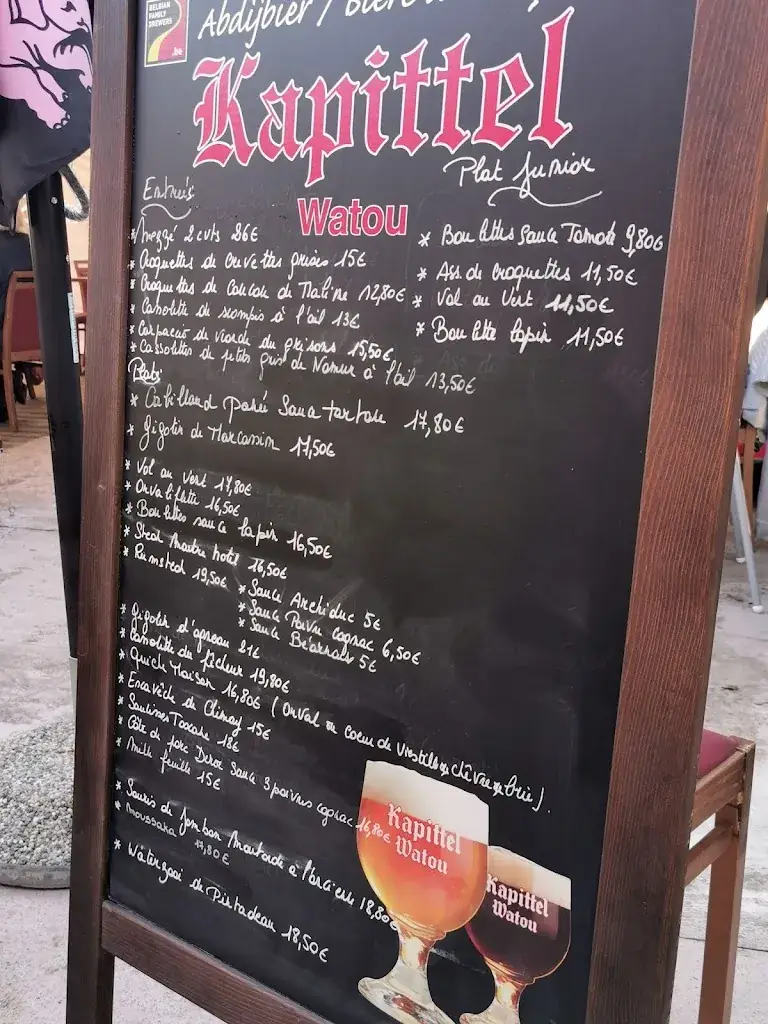 BELGIAN
FAMILY
BREWERS
.be
Abdijbier / Bière
Kapittel
Watou
Plat Junior
* Boulettes Sauce Tomate 9,80€
* Ass. de croquettes 11,50€
* Vol au Vent 11,50€
* Boulette lapin 11,50€
Entrées
* Mezzé 2 cvts 26€
* Croquettes de crevettes grises 15€
* Croquettes de Coucou de Maline 12,80€
* Casolette de scampis à l'ail 13€
* Carpaccio de viande des grisons 15,50€
* Cassolettes de petits gris de Namur à l'ail 13,50€
Plats
* Cabillaud pané Sauce tartare 17,80€
* Gigotin de Marcassin 17,50€
* Vol au Vent 17,80€
* Orvaliflette 16,50€
* Boulettes sauce lapin 16,50€
* Steak Maitre hotel 16,50€
* Rumsteak 19,50€
* Sauce Archiduc 5€
* Sauce Poivre cognac 6,50€
* Sauce Béarnaise 5€
* Gigotin d'agneau 21€
* Casolette du pêcheur 19,80€
* Quiche Maison 16,80€ (Orval ou coeur de chèvre ou brie).
* Escavèche de Chimay 15€
* Saucisses Toscane 18€
* Côte de porc Sauce 3 poivres cognac 16,80€
* Mille feuille 15€
* Souris de Jambon Moutarde à l'ancienne 18,80€
* Moussaka 17,80€
* Waterzooi de Pintadeau 18,50€
Kapittel
Watou
Kapittel
Watou